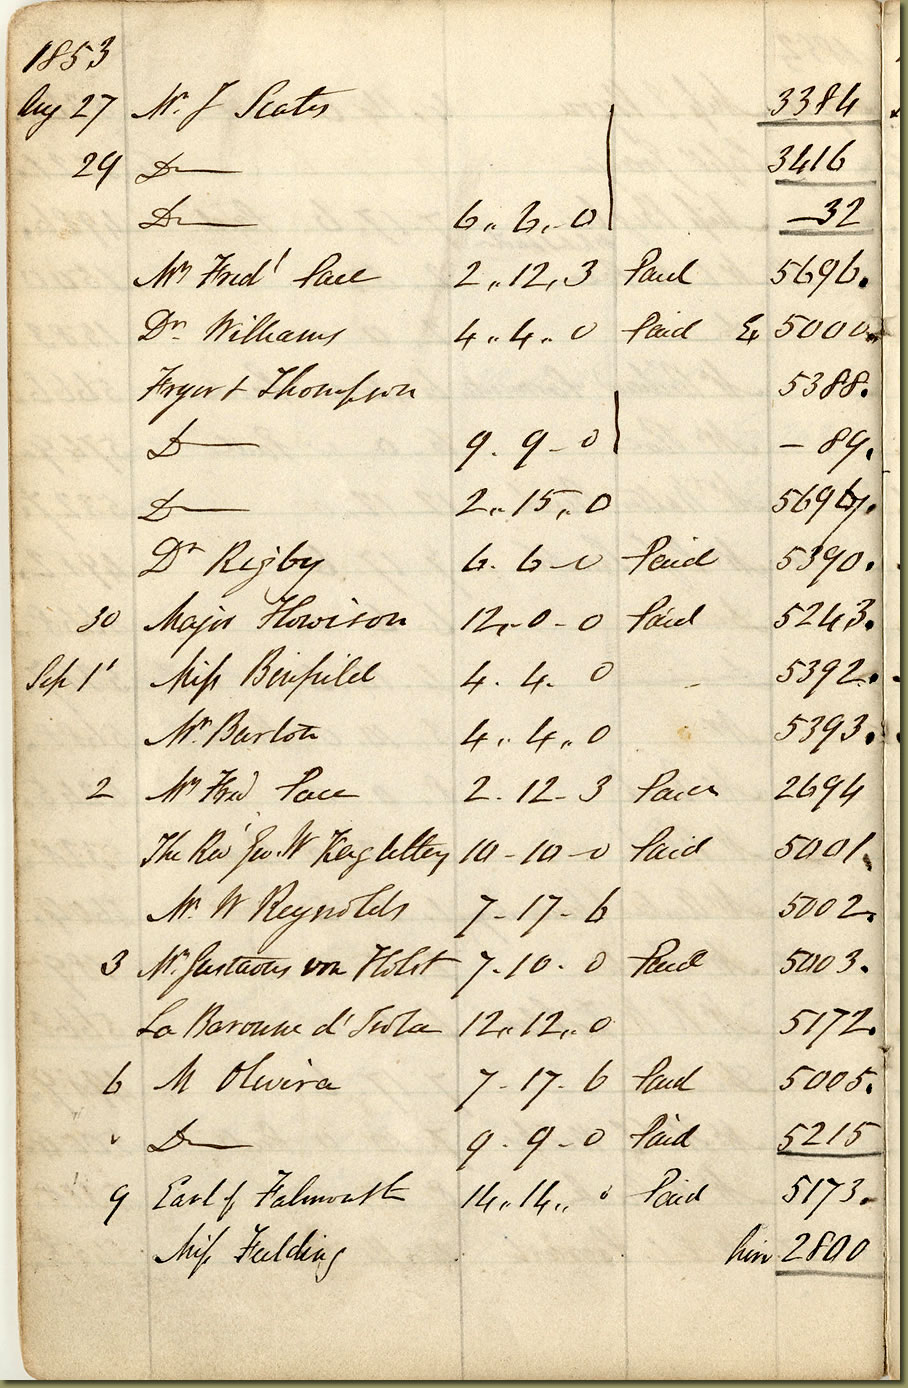 1853
Aug 27 Mr J Scates 3384
29 Do 3416
Do 6.. 6.. 0 – 32
Mr Fredk Pace 2.. 12.. 3 Paid 5696.
Dr Williams 4.. 4.. 0 Paid Ex 5000
Fryer & Thompson 5388.
Do 9. 9 - 0 – 89.
Do 2.. 15.. 0
Dr Rigby 6. 6 - 0 Paid 5390.
30 Major Howison 12. - 0 - 0 Paid 5243.
Sep 1st Miss Binfield 4. 4. 0 5392.
Mr Burton 4.. 4.. 0 5393.
2 Mr Fred Pace 2. 12 - 3 Paid 2694
The Revd Geo. W 10 - 10 - 0 Paid 5001
Mr W Reynolds 7 - 17 - 6 5002.
3 Mr Gustavus von Holst 7. 10. 0 Paid 5003.
La Baronne d' 12.. 12.. 0 5172.
6 M Oliveira 7 - 17. 6 Paid 5005.
Do 9. 9 - 0 Paid 5215
9 Earl of Falmouth 14.. 14.. 0 Paid 5173.
Miss Feilding hire 2800